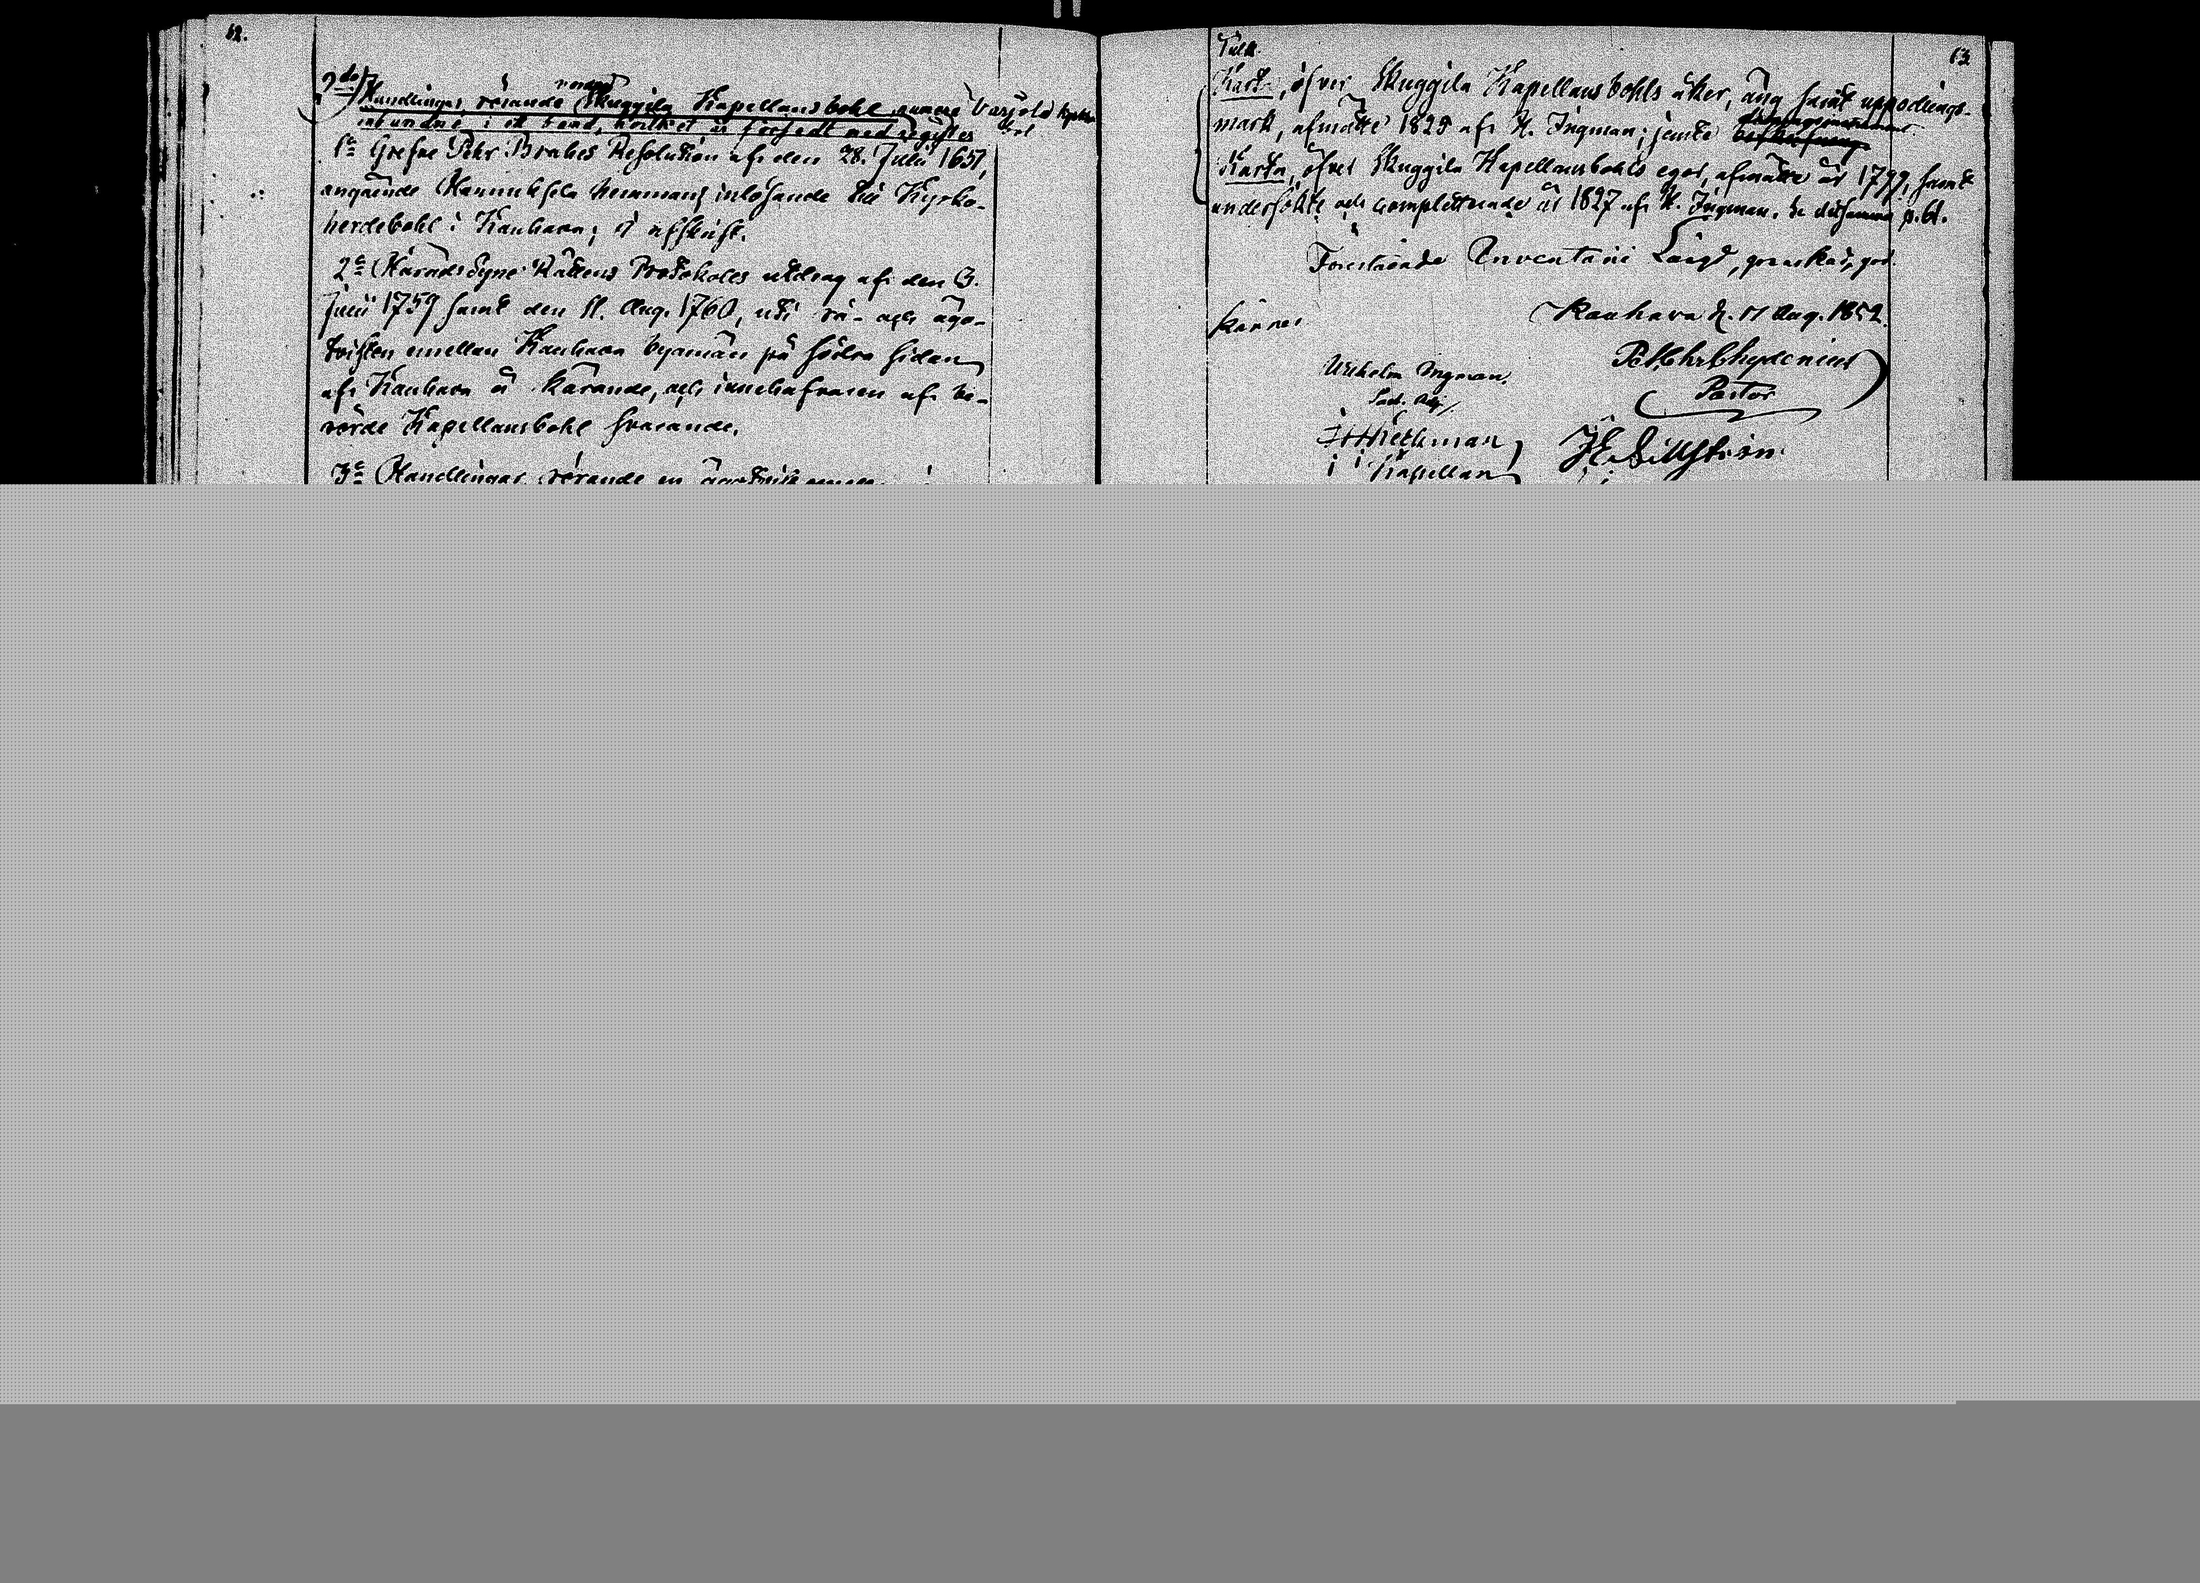 62.
2do) Handlingar, rörande Skuggila Kapellansbohl, numera Varjola
inbundne i ett band, hvilket är försedt med register
1o Grefve Pehr Brahes Resolution af den 28. Julii 1651,
angående Hannuksela hemmans inlösande till Kyrko-
herdebohl i Kauhava; i afskrift.
2o HäradsSyne Rättens Protokolls utdrag af den 3.
Julii 1759 samt den 11. Aug. 1760, uti rå- och ägo-
tvisten emellan Kauhava byamän på södra sidan
af Kauhava å kärande, och innehafvaren af be-
rörde Kapellansbohl svarande.
3o Handlingar rörande en ägotvist
63.
Karta, öfver Skuggila Kapellansbohls åker, äng samt upodlings-
mark, afmätte 1825 af H. Ingman; jemte
Karta, öfver Skuggila Kapellansbohls egor, afmätte år 1799, samt
undersökte och completterade år 1827 af H. Ingman. p. 61.
Förestående Inventarii Längd, granskad, god-
kännes
Kauhava d. 17 Aug. 1852.
Wilhelm Ingman,
Pet. Chr. Chydenius
Pastor
Kapellan